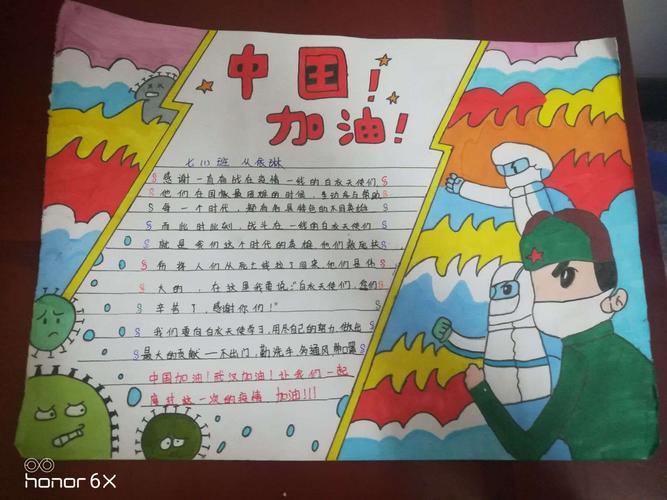 中国！
加油！
七(1)班
感谢一直奋战在疫情一线的白衣天使们
他们在国家最困难的时候，
每一个时代，都有有具特色的不同英雄
而此时此刻，战斗在一线的白衣天使们
就是我们这个时代的英雄 他们
人们从死亡线拉了回来，他们是伟
大的，在这里我要说："白衣天使们，您们
辛苦了，感谢你们！"
我们要向白衣天使学习，用尽自己的努力，做出
最大的贡献——不出门，勤洗手，多通风，戴口罩
中国加油！武汉加油！让我们一起
度过这一次的疫情 加油!!!
honor 6X